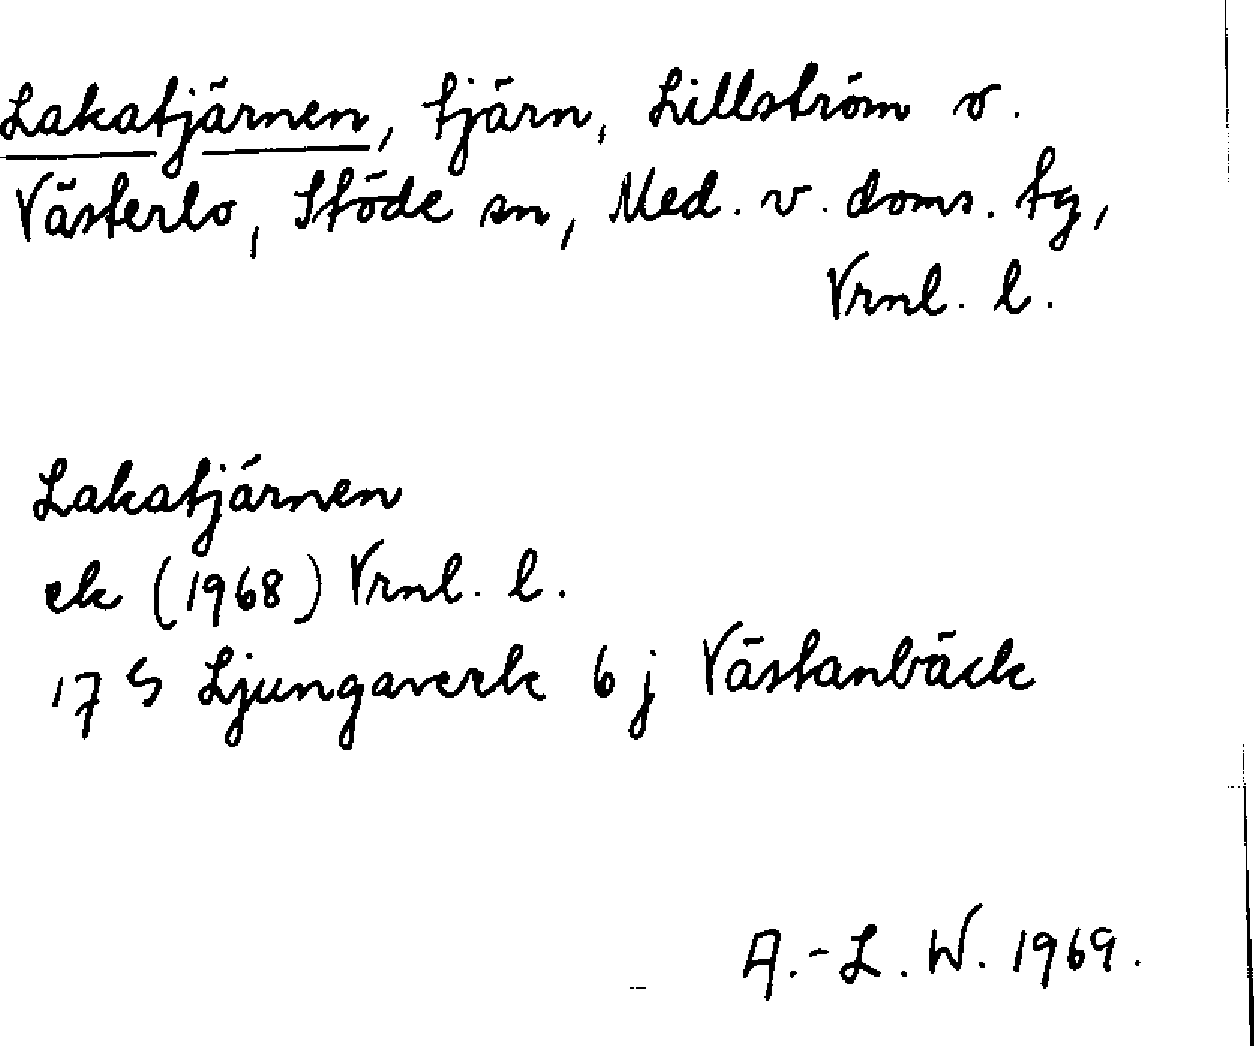 Lakatjärnen, tjärn, Lillström o.
Västerlo, Stöde sn, Med. v. doms. tg,
Vrnl. l.
Lakatjärnen
ek (1968) Vrnl. l.
17 S Ljungaverk 6 j Västanbäck
A.-L. W. 1969.